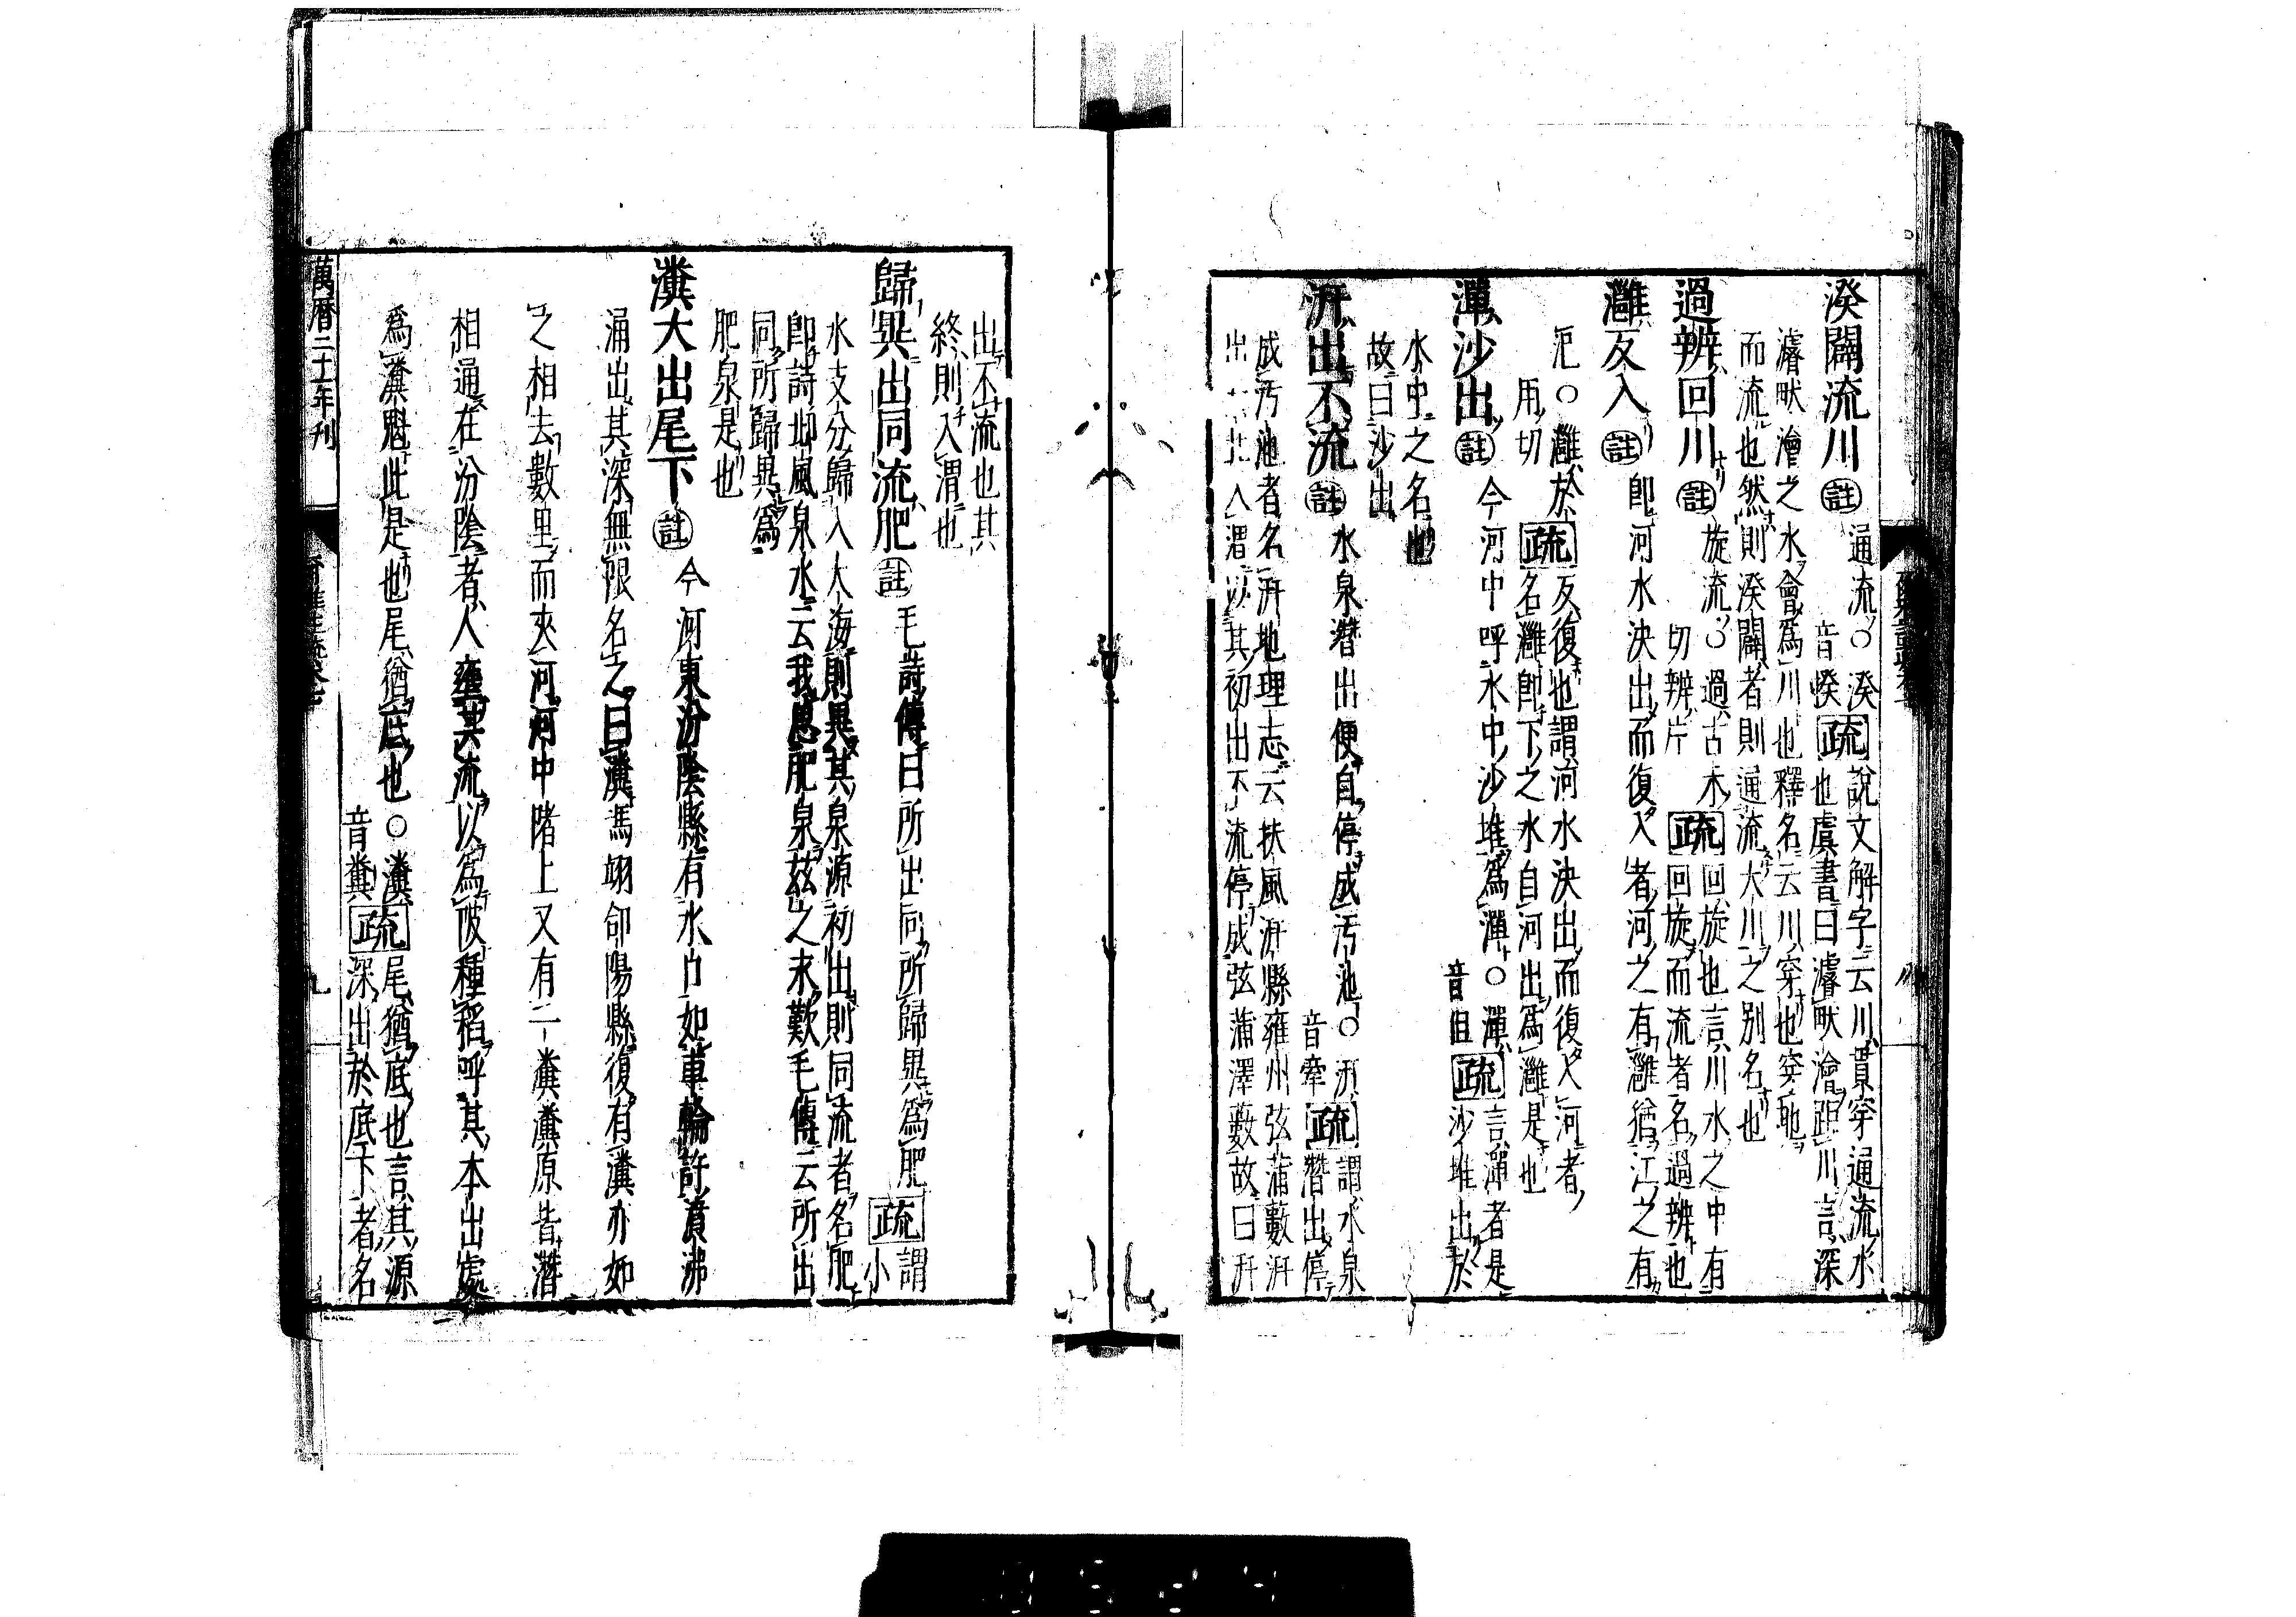 湀闢流川註通流○湀音揆疏說文解字云川貫穿通流水
也虞書曰濬畎澮距川言深
濬畎澮之水會爲川也釋名云川穿也穿地
而流也然則湀闢者則通流大川之別名也
過辨回川註旋流○過古禾切辨片疏回旋也言川水之中有
回旋而流者名過辨也
灉反入註即河水決出而復入者河之有灉猶江之有
沱○灉於用切疏反復也謂河水決出而復入河者
名灉即下之水自河出爲灉是也
潬沙出註今河中呼水中沙堆爲潬○潬音但疏言潬者是
沙堆出於
水中之名也
故曰沙出
汧出不流註水泉潛出便自停成汚池○汧音牽疏謂水泉
潛出停
成汚池者名汧地理志云扶風汧縣雍州弦蒲藪汧
出 入渭以其初出不流停成弦蒲澤藪故曰汧
出不流也其
終則入渭也
歸異出同流肥註毛詩傳曰所出同所歸異爲肥疏謂
小
水支分歸入大海則異其泉源初出則同流者名肥
即詩邶風泉水云我思肥泉茲之永歎毛傳云所出
同所歸異爲
肥泉是也
瀵大出尾下註今河東汾陰縣有水口如車輪許濆沸
涌出其深無限名之曰瀵馮翊郃陽縣復有瀵亦如
之相去數里而夾河河中陼上又有一瀵瀵原皆潛
相通在汾陰者人壅其流以爲陂種稻呼其本出處
爲瀵魁此是也尾猶底也○瀵音糞疏尾猶底也言其源
深出於底下者名
萬曆二十一年刊
九